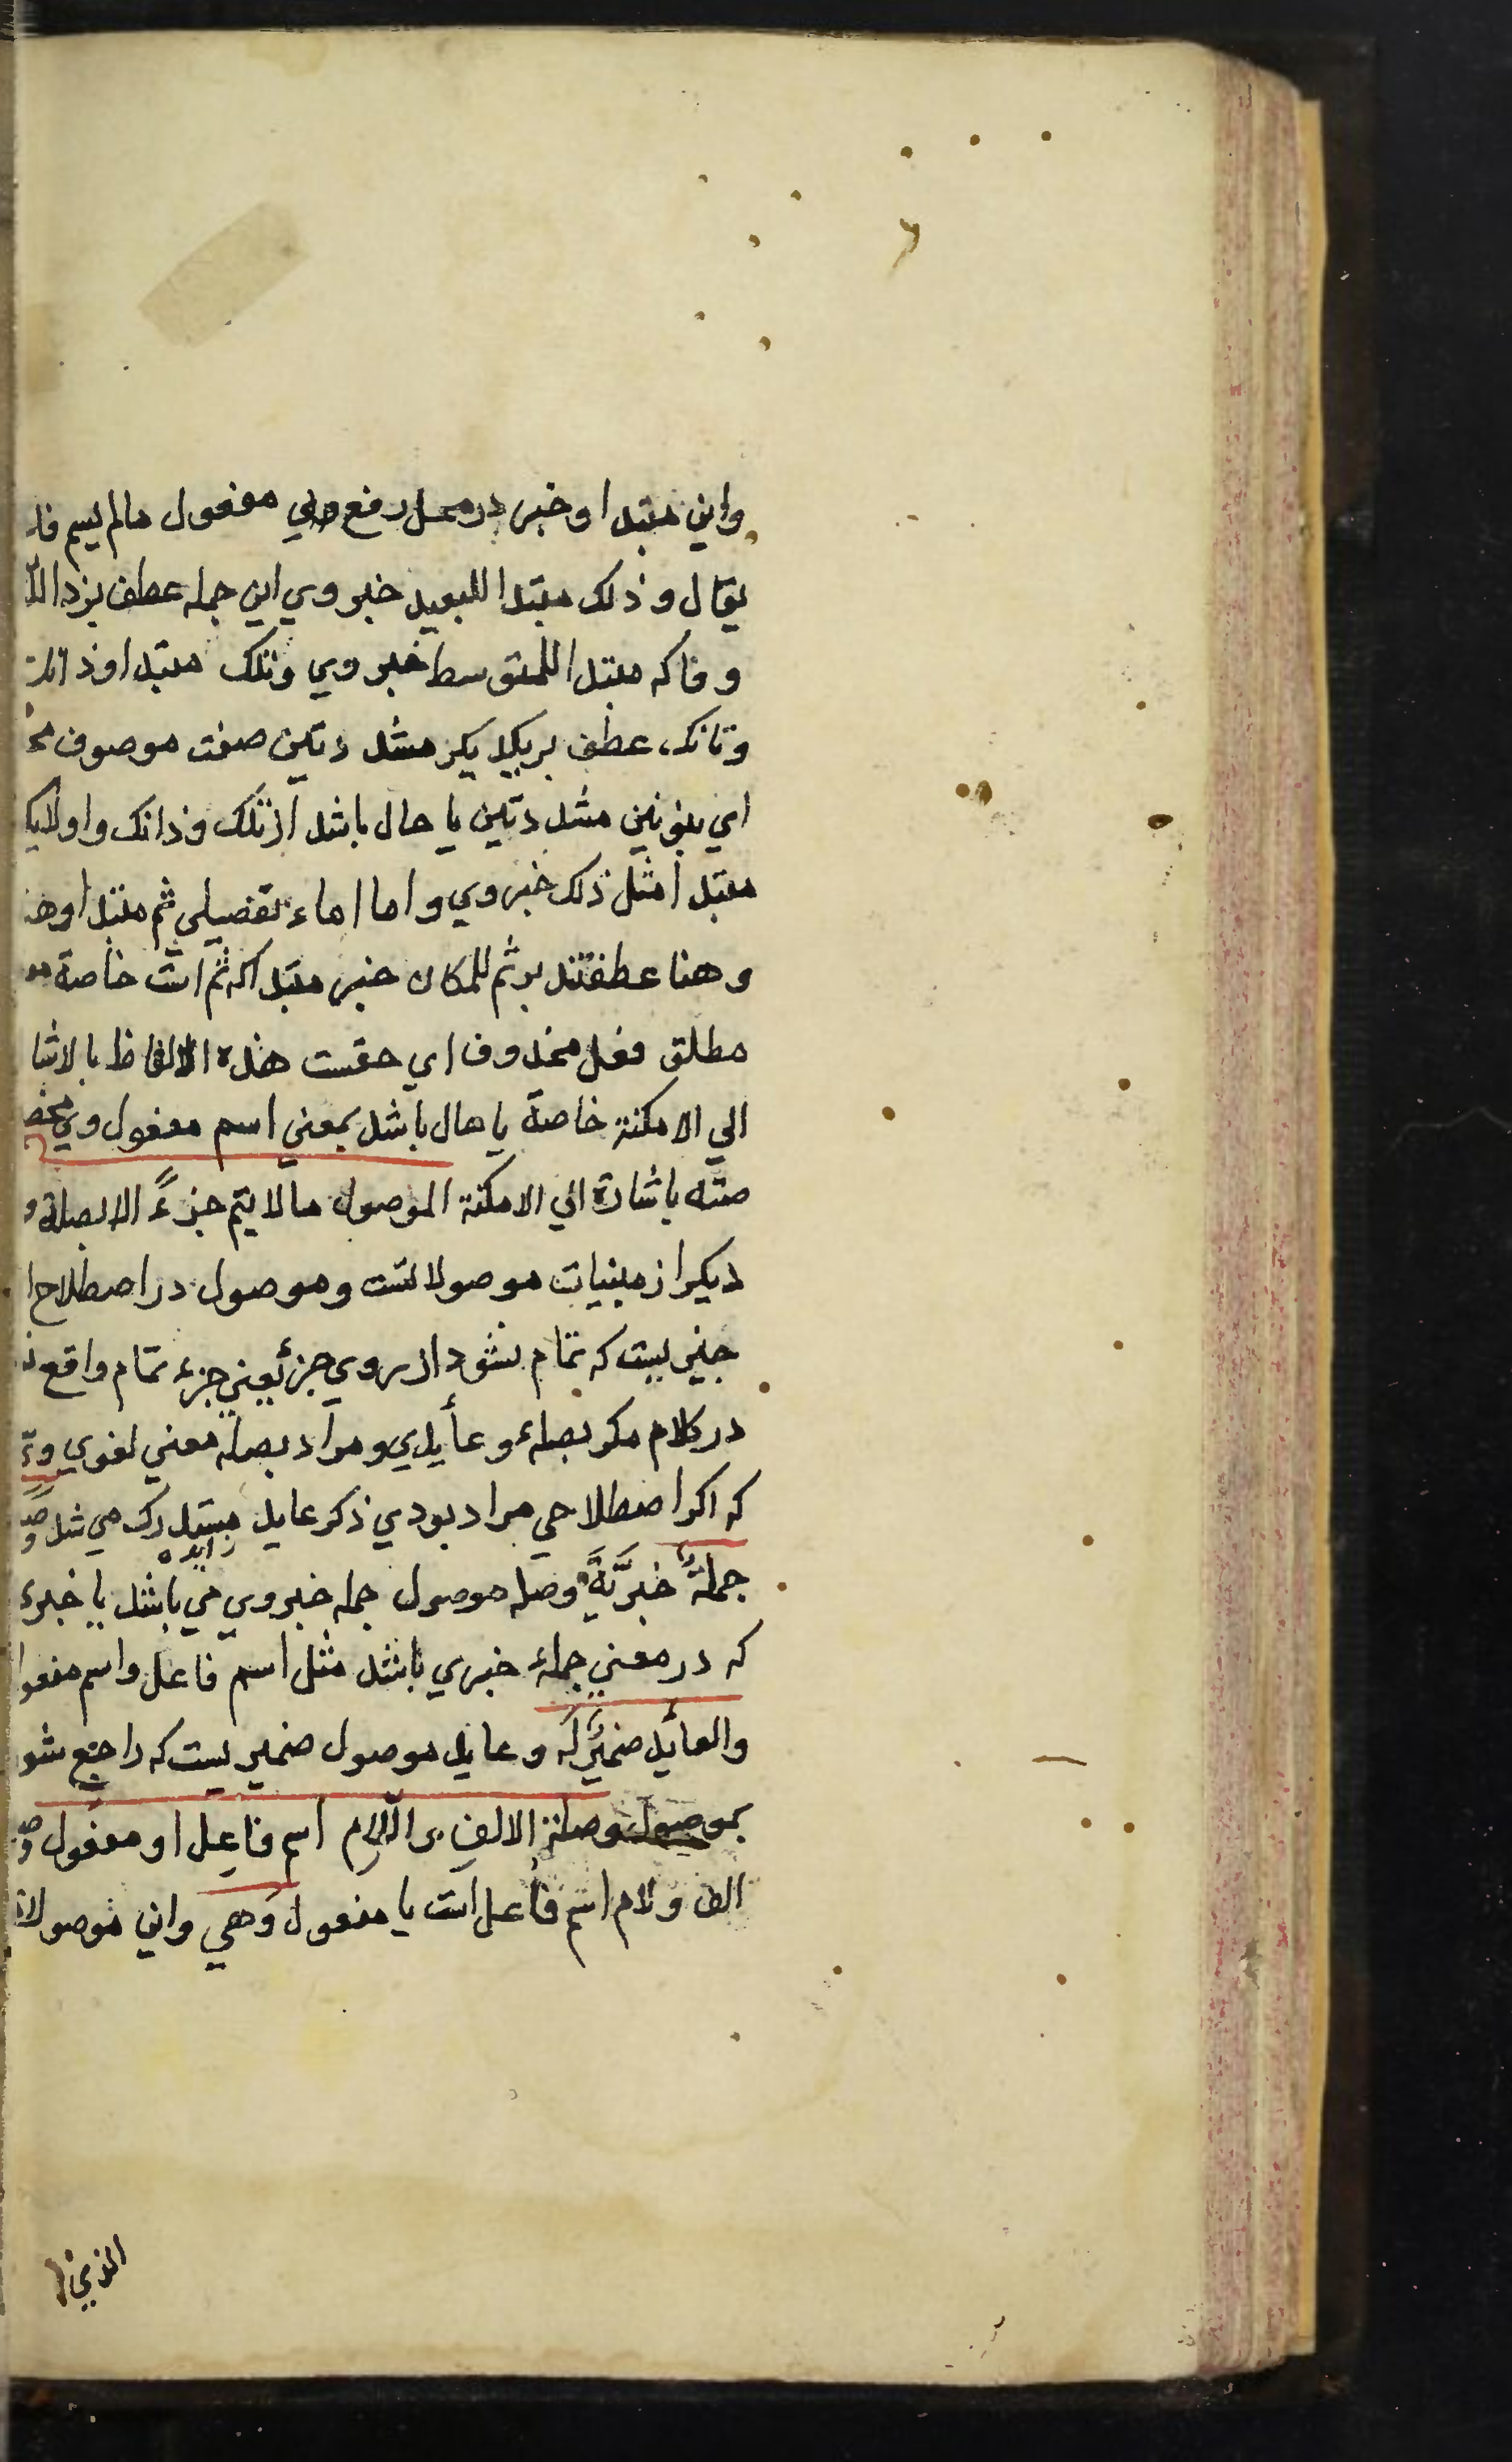 واين مبتدا وخبر در محل رفع مفعول مالم يسم فا
يقال و ذلك مبتدا للبعيد خبر وي اين جمله عطف بر ذا
و ذاكه مبتدا للمتوسط خبر وي وتلك مبتدا وذانك
وتانك عطف بريكديكر مشددتين صفت موصوف
اي بنونين مشددتين يا حال باشد از تلك وذانك واولايك
مبتدا مثل ذلك خبر وي واما اماء تفصيلي ثم مبتدا وهنا
وهنا عطفند بر ثم للمكان خبر مبتدا كه ثم است خاصة
مطلق فعل محذوف اي خصت هذه الالفاظ بالاشا
الي الامكنة خاصة يا حال باشد بمعني اسم مفعول وي
صته باشارة الي الامكنة الموصول مالا يتم جزءً الا بصلة و
ديكر از مبنيات موصولاتست وموصول در اصطلاح
چيزيست كه تمام نشود از روي جزئيعني جزء تمام واقع
در كلام مكر بصلهء و عأيدي ومراد بصله معني لغوي
كه اكر اصطلاحي مراد بودي ذكر عايد مستدرك مي شد
زايده
جملةٌ خبريَّةٌ وصله موصول جمله خبروي مي باشد يا خبرء
كه در معني جملهء خبري باشد مثل اسم فاعل واسم مفعو
والعائد ضميرٌ لَه وعايد موصول ضميريست كه راجع شو
بموصول وصلة الالفِ واللام اسم فاعِل او مفعُول
الف ولام اسم فاعل است يا مفعول وَهي واين موصولات
الذي